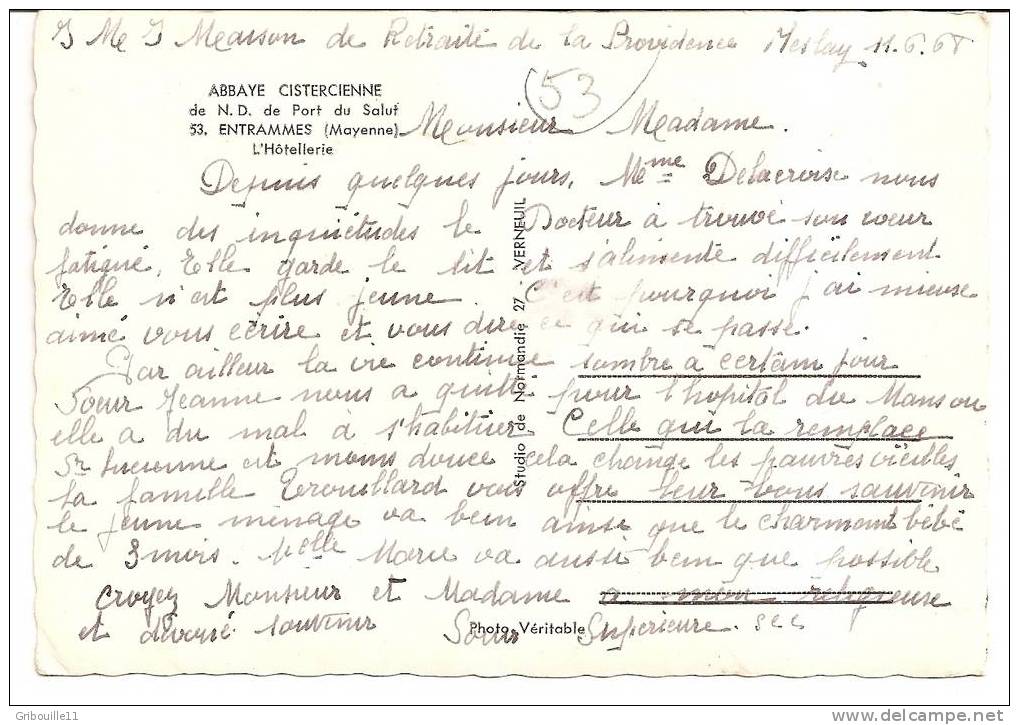 J Me J Maison de Retraite de la Providence Meslay 11.6.68
53
ABBAYE CISTERCIENNE
de N.D. de Port du Salut
53. ENTRAMMES (Mayenne)
L'Hôtellerie
Monsieur Madame.
Depuis quelques jours, Mme Delacroise nous
donne des inquiétudes le Docteur à trouvé son coeur
fatigué, Elle garde le lit et s'alimente difficilement
Elle n'est plus jeune. C'est pourquoi j'ai mieux
aimé vous écrire et vous dire ce qui se passe.
Par ailleur la vie continue sombre a certain jour
Soeur Jeanne nous a quitté pour l'hopital du Mans ou
elle a du mal à s'habituer Celle qui la remplace
Sr Lucienne est moins douce cela change les pauvres vieilles
La famille Trouillard vous offre leur bons souvenir
le jeune ménage va bien ainsi que le charmant bébé
de 3 mois. Melle Marie va aussi bien que possible
Croyez Monsieur et Madame a mon religieuse
et dévoué souvenir Soeur Supérieure.
Studio de Normandie 27 - VERNEUIL
Photo Véritable
Gribouille11
delcampe.net